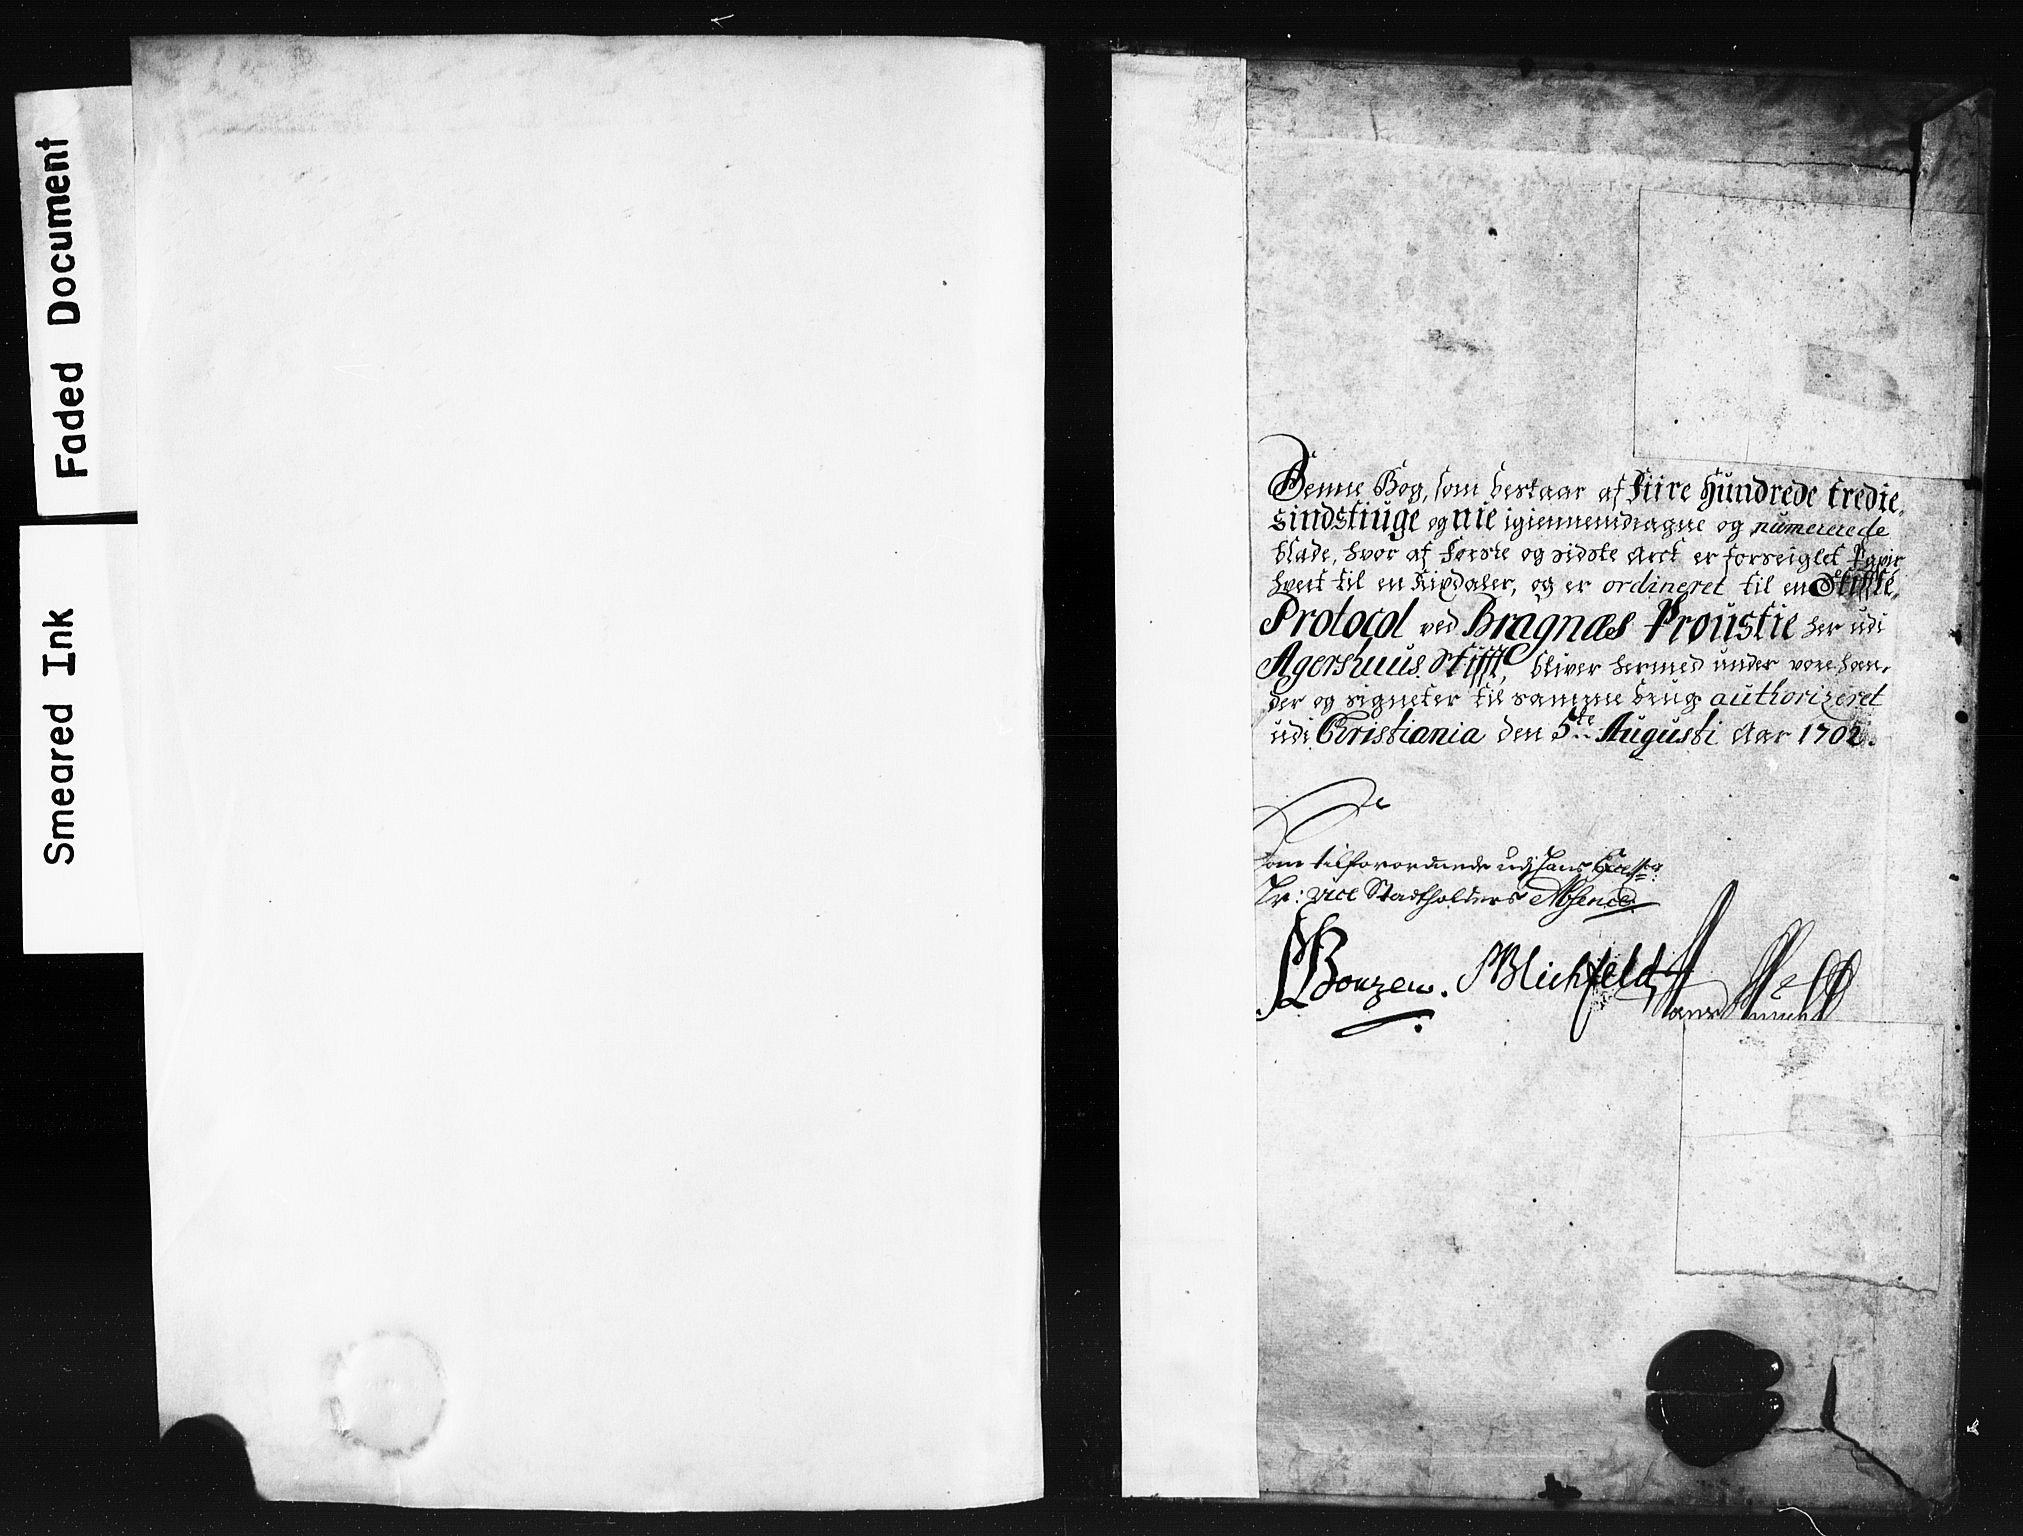 Faded Document
Smeared Ink
Denne Bog, som bestaar af Fiire Hundrede tredie,
sindstiuge og nie igiennemdragne og numererede
blade, hvor af første og sidste Arck er forseiglet Papir
hvert til en Rixdaler, og er ordineret til en Skiffte,
Protocol ved Bragnæs Proustie her udi
Agershuus Stifft, bliver hermed under vore hæn,
der og signeter til samme brug authorizeret
udi Christiania den 5te Augusti Aar 1702.
som tilforordnede udj hans
Hr: Vice Stadtholders Absence
Blichfeld